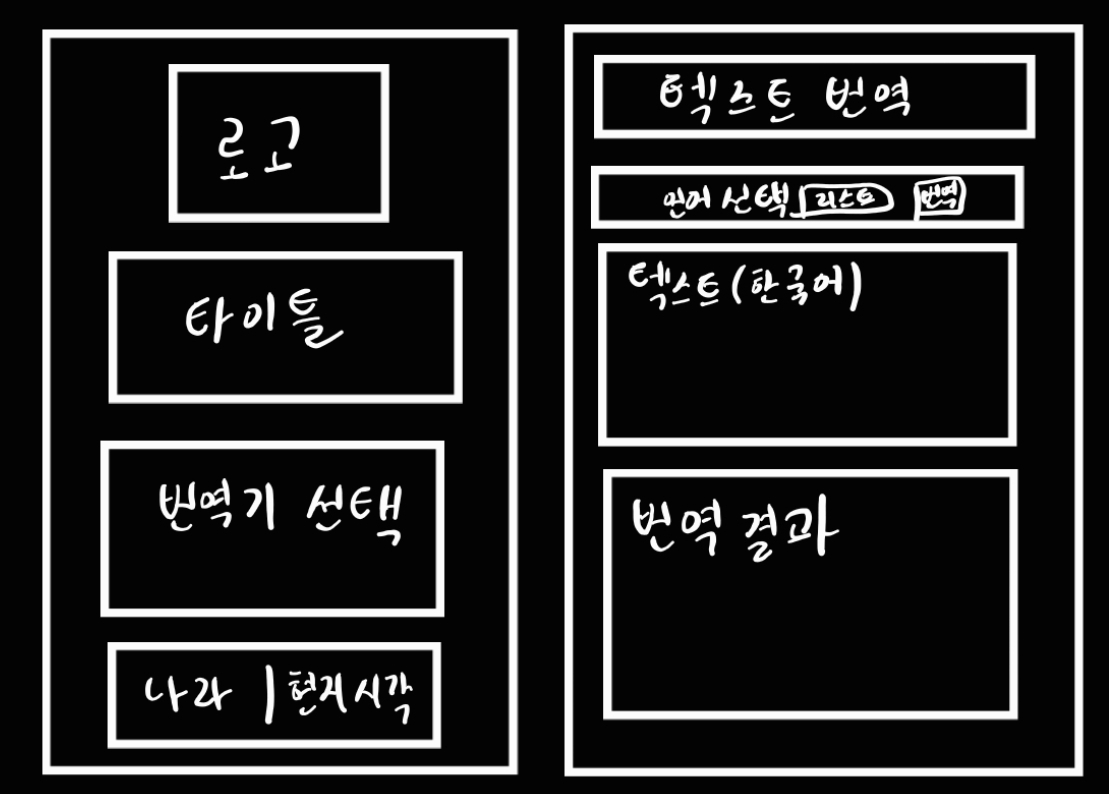 로고
타이틀
번역기 선택
나라 | 현지시각
텍스트 번역
언어 선택 리스트 번역
텍스트(한국어)
번역 결과